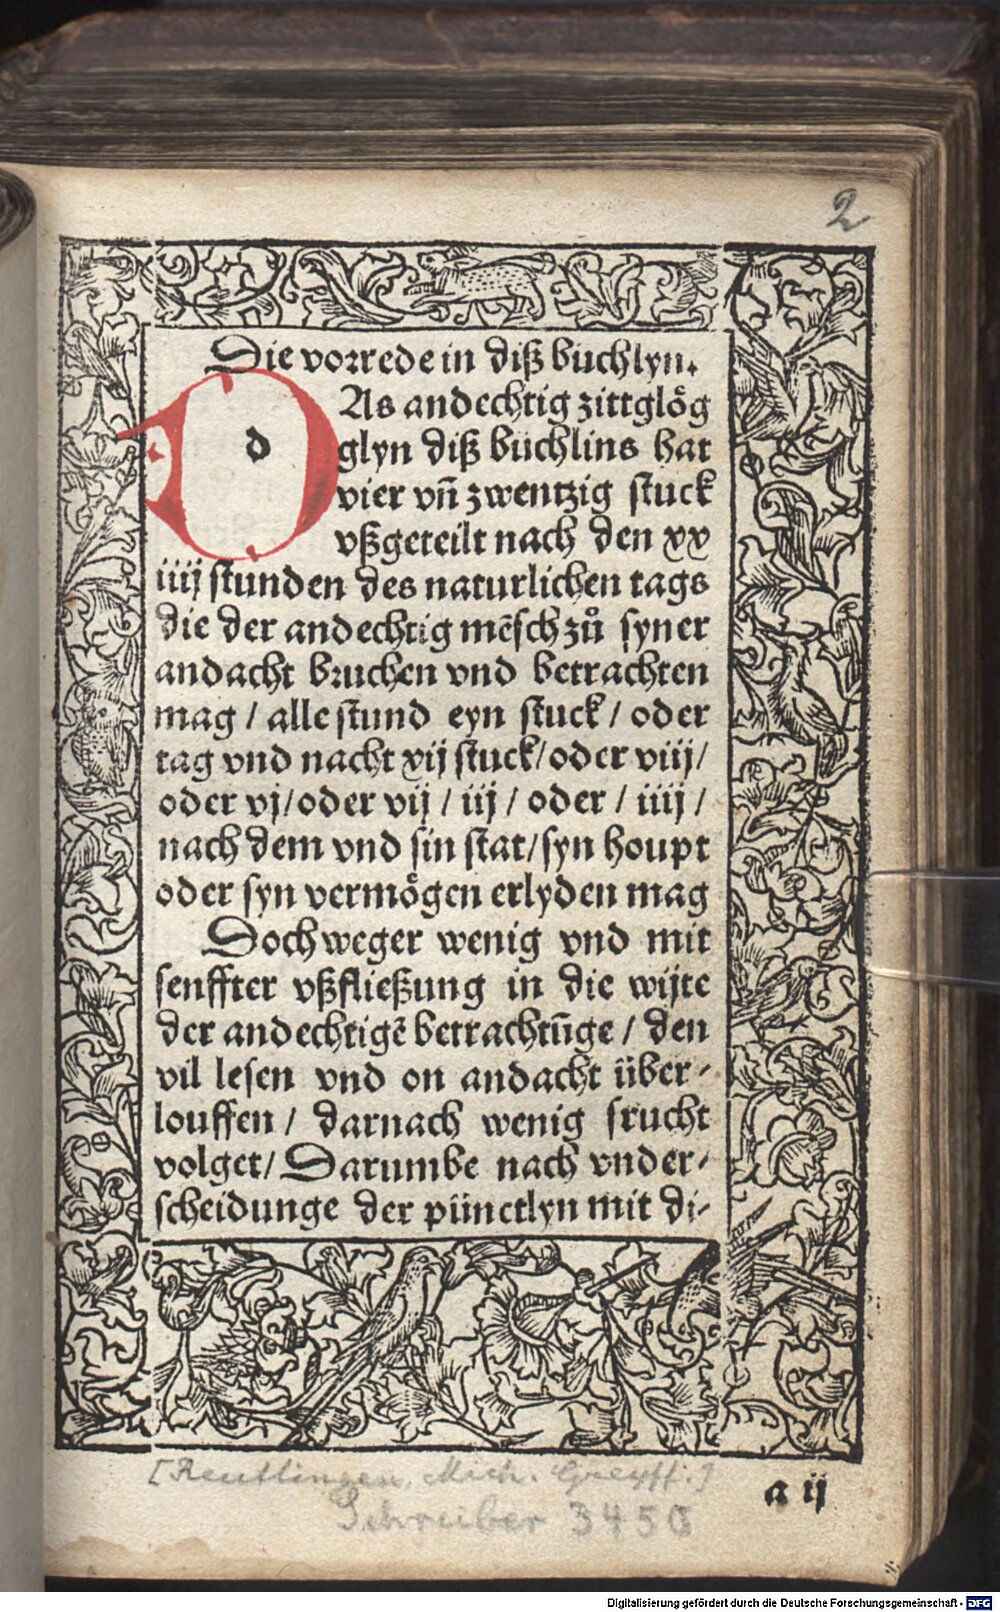 2
Die vorrede in diß büchlyn.
d As andechtig zittglög
glyn diß büchlins hat
vier vn̄ zwentzig stuck
vßgeteilt nach den xx
iiij stunden des naturlichen tags
die der andechtig mēsch zů syner
andacht bruchen vnd betrachten
mag / alle stund eyn stuck / oder
tag vnd nacht xij stuck / oder viij /
oder vj / oder vij / iij / oder / iiij /
nach dem vnd sin stat / syn houpt
oder syn vermögen erlyden mag
Doch weger wenig vnd mit
senffter vßfließung in die wijte
der andechtigē betrachtūge / den
vil lesen vnd on andacht über-
louffen / darnach wenig frucht
volget / Darumbe nach vnder-
scheidunge der pünctlyn mit di-
a ij
[Reutlingen, Mich. Greyff.]
Schreiber 3450
Digitalisierung gefördert durch die Deutsche Forschungsgemeinschaft - DFG